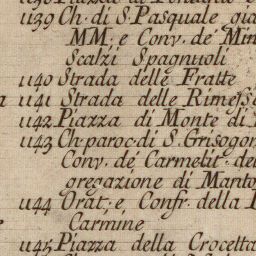 1139 Ch. di S. Pasquale, già
MM. e Conv. de' Min
Scalzi Spagnuoli
1140 Strada delle Fratte
1141 Strada delle Rimesse
1142 Piazza di Monte di
1143 Ch. paroc. di S. Grisogon
Conv. dé Carmelit. del
gregazione di Manto
1144 Orat. e Confr. della
Carmine
1145 Piazza della Crocetta